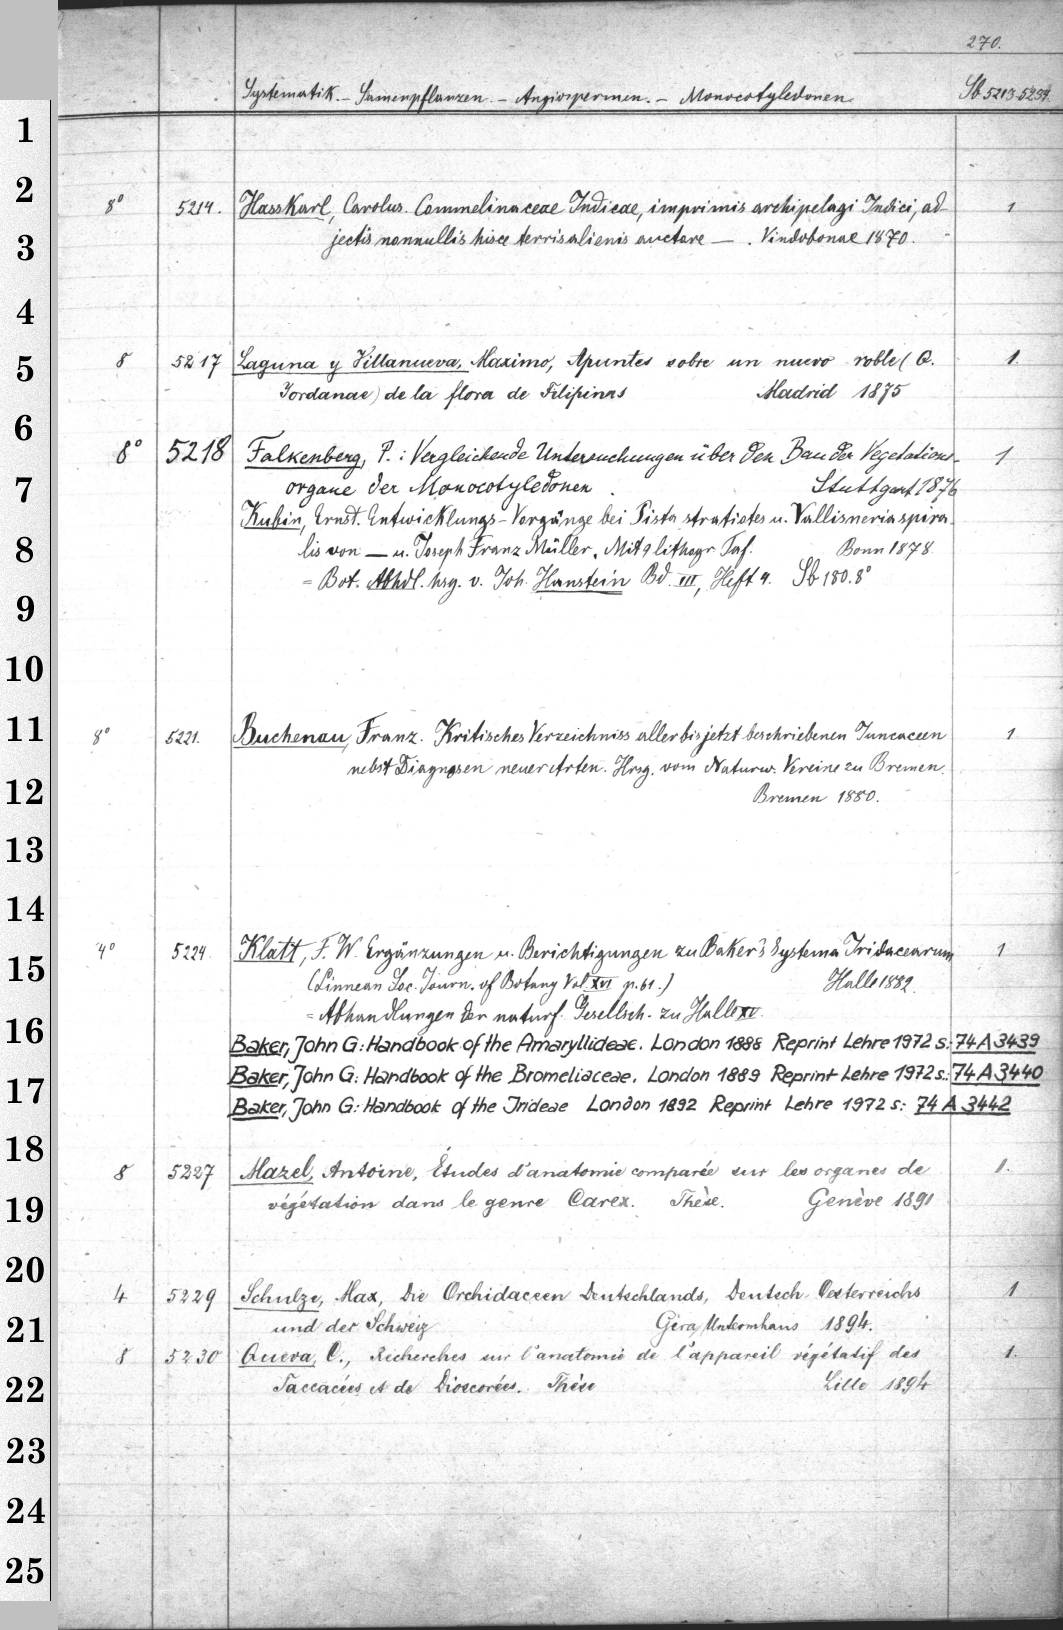 270.
Systematik. – Samenpflanzen. – Angiospermen. – Monocotyledonen. Sb 5213-5234.
1
2
8° 5214. Hasskarl, Carolus. Commelinaceae Indicae, imprimis archipelagi Indici, ad- 1
3
jectis nonnullis hisce terris alienis auctore — . Vindobonae 1870.
4
5
8 5217 Laguna y Villanueva, Maximo, Apuntes sobre un nuevo roble (Q. 1.
Jordanae) de la flora de Filipinas Madrid 1875
6
8° 5218 Falkenberg, P.: Vergleichende Untersuchungen über den Bau der Vegetations- 1
7
organe der Monocotyledonen . Stuttgart 1876
Kubin, Ernst. Entwicklungs-Vorgänge bei Pistia stratiotes u. Vallisneria spira-
8
lis von — u. Joseph Franz Müller. Mit 9 lithogr Taf. Bonn 1878
= Bot. Abhdl. hrsg. v. Joh. Hanstein Bd. III, Heft 4. Sb 180.8°
9
10
11
8° 5221. Buchenau, Franz. Kritisches Verzeichniss aller bis jetzt beschriebenen Juncaceen 1
nebst Diagnosen neuer Arten. Hrsg. vom Naturw. Vereine zu Bremen.
12
Bremen 1880.
13
14
4° 5224. Klatt, F. W. Ergänzungen u. Berichtigungen zu Baker's Systema Iridacearum 1
15
(Linnean Soc. Journ. of Botany Vol. XVI p. 61.) Halle 1882.
= Abhandlungen der naturf. Gesellsch. zu Halle XV.
16
Baker, John G: Handbook of the Amaryllideae. London 1888 Reprint Lehre 1972 s.: 74 A 3439
17
Baker, John G: Handbook of the Bromeliaceae. London 1889 Reprint Lehre 1972 s.: 74 A 3440
Baker, John G: Handbook of the Irideae London 1892 Reprint Lehre 1972 s: 74 A 3442
18
8 5227 Mazel, Antoine, Études d'anatomie comparée sur les organes de 1.
19
végétation dans le genre Carex. Thèse. Genève 1891
20
4 5229 Schulze, Max, Die Orchidaceen Deutschlands, Deutsch-Oesterreichs 1
21
und der Schweiz Gera, Untermhaus 1894.
8 5230 Queva, C., Recherches sur l'anatomie de l'appareil végétatif des 1.
22
Taccacées et de Dioscorées. Thèse Lille 1894
23
24
25